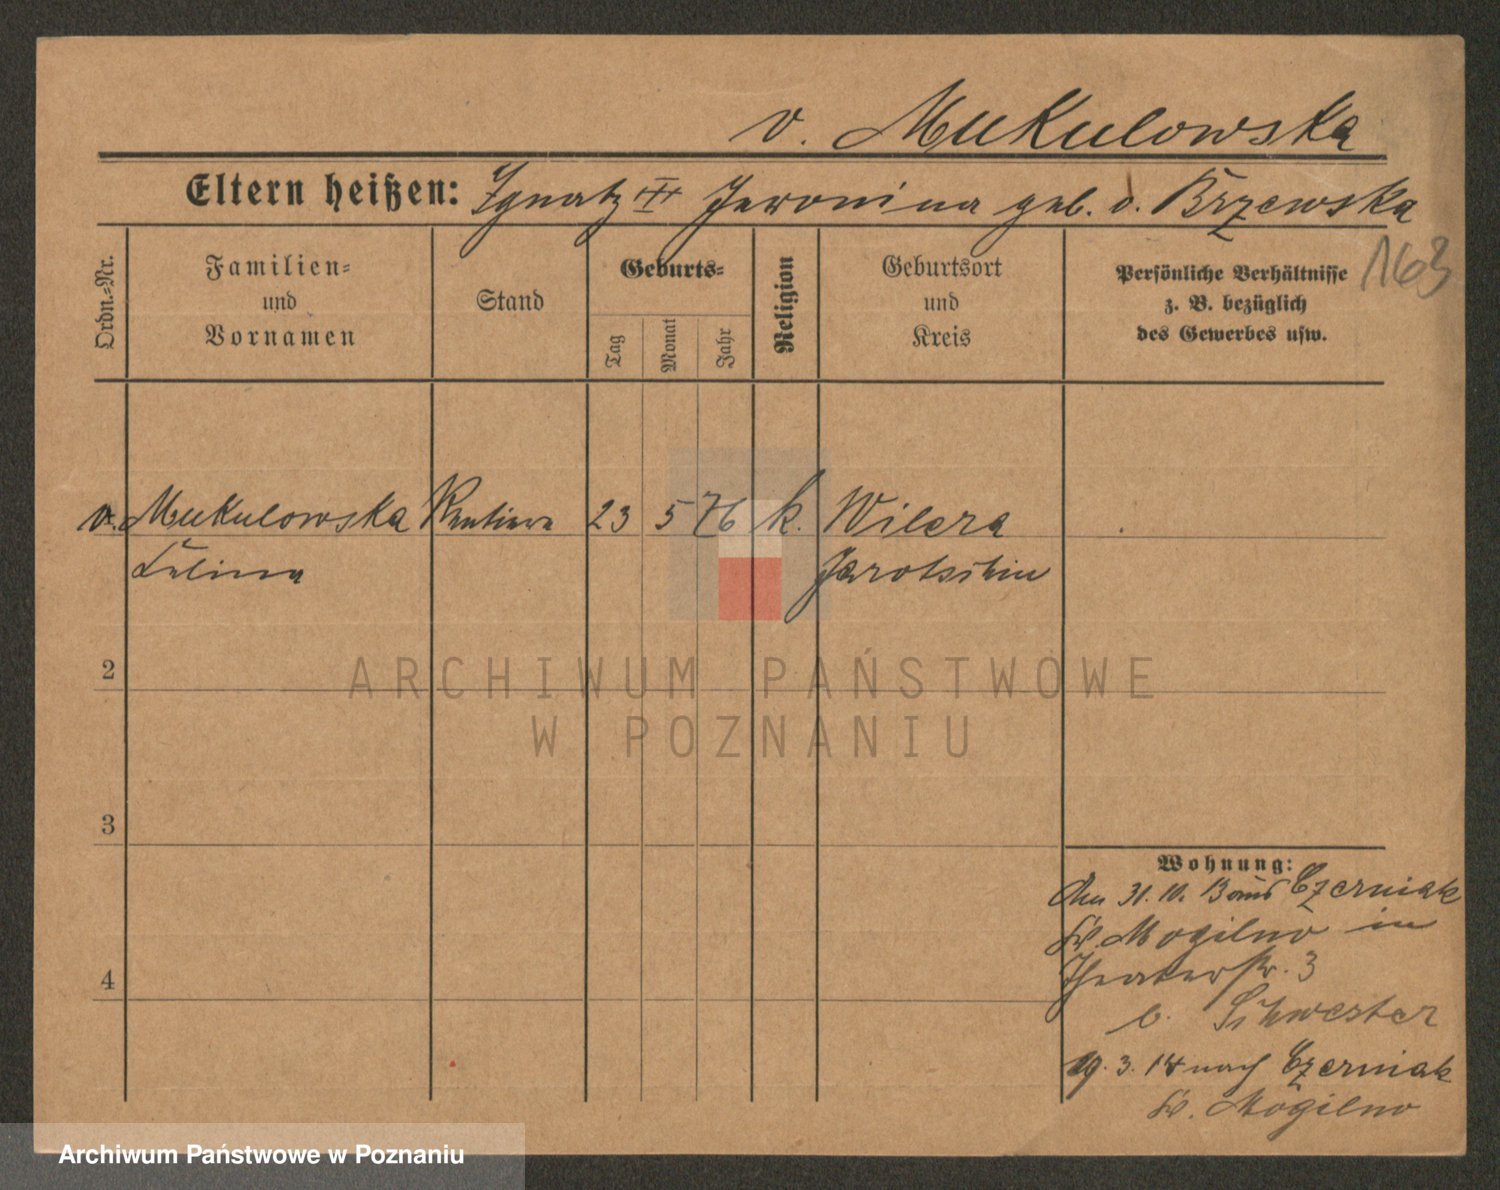 v. Mukulowska
Eltern heißen: Ignatz ++ Jeronina geb. v. Brzewska
163
Ordn.-Nr.
Familien-
und
Vornamen
Stand
Geburts-
Tag
Monat
Jahr
Religion
Geburtsort
und
Kreis
Persönliche Verhältnisse
z. B. bezüglich
des Gewerbes usw.
v. Mukulowska Rentiere 23 5 76 k. Wilcza
Jarotschin
2
ARCHIWUM PAŃSTWOWE
W POZNANIU
3
Wohnung:
31. 10. 13 aus Czerniak
Kr. Mogilno in
Theaterstr. 3
b. Schwester
19. 3. 14 nach Czerniak
Kr. Mogilno
4
Archiwum Państwowe w Poznaniu